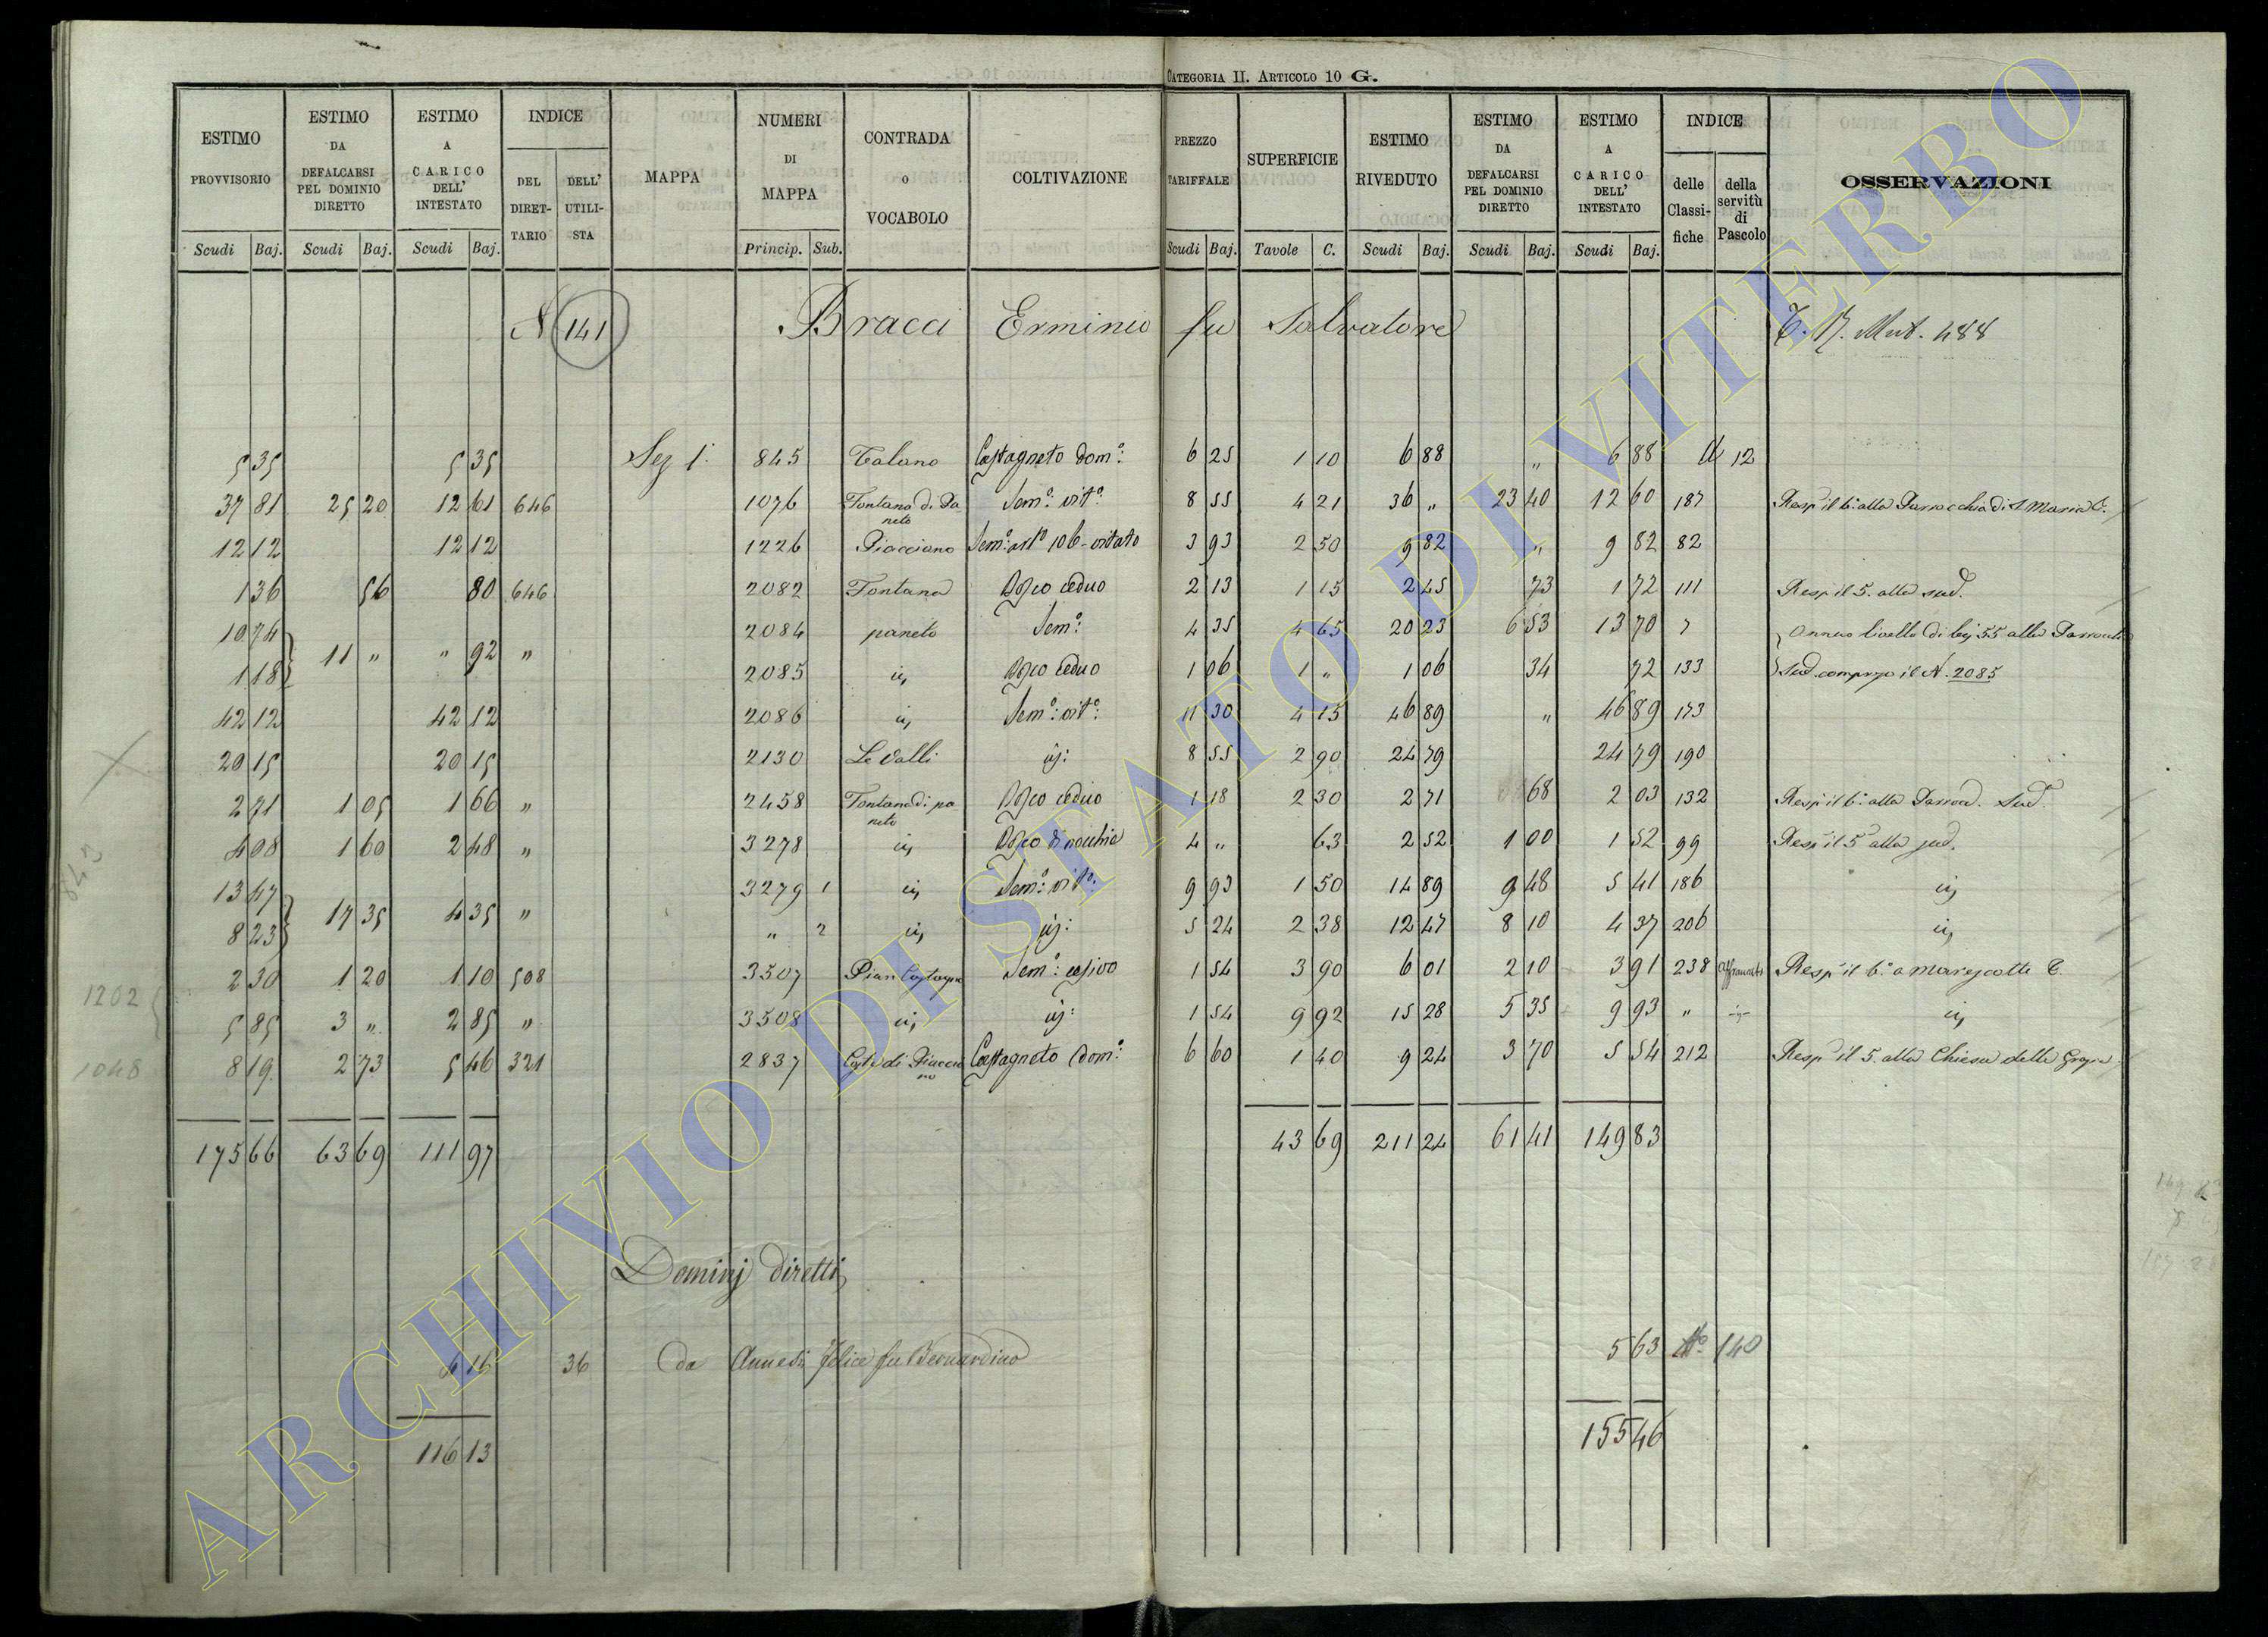 CATEGORIA II. ARTICOLO 10 G.
ESTIMO PROVVISORIO Scudi Baj. | ESTIMO DA DEFALCARSI PEL DOMINIO DIRETTO Scudi Baj. | ESTIMO A CARICO DELL' INTESTATO Scudi Baj. | INDICE DEL DIRETTARIO DELL' UTILISTA | MAPPA | NUMERI DI MAPPA Princip. Sub. | CONTRADA O VOCABOLO | COLTIVAZIONE | PREZZO TARIFFALE Scudi Baj. | SUPERFICIE Tavole C. | ESTIMO RIVEDUTO Scudi Baj. | ESTIMO DA DEFALCARSI PEL DOMINIO DIRETTO Scudi Baj. | ESTIMO A CARICO DELL' INTESTATO Scudi Baj. | INDICE delle Classifiche della servitù di Pascolo | OSSERVAZIONI
N 141 Bracci Erminio fu Salvatore Mut. 488
5 35 5 35 Sez 1ª 845 Talano Castagneto dom°: 6 25 1 10 6 88 " 6 88 12
37 81 25 20 12 61 646 1076 Fontana di Paneto Sem°: vit°: 8 55 4 21 36 " 23 40 12 60 187 Resp il 6° alla Parrocchia di S Maria
12 12 12 12 1226 Piacciano 3 93 2 50 9 82 " 9 82 82
1 36 56 80 646 2082 Fontana Bosco ceduo 2 13 1 15 2 45 73 1 72 111 Resp il 5. alla sud.
10 74 11 " " 92 " 2084 paneto Sem°: 4 35 4 65 20 23 6 53 13 70 7 Annuo livello di baj 55 alla Parrocchia
1 18 2085 id Bosco ceduo 1 06 1 " 1 06 34 72 133 Sud. compreso il N. 2085
42 12 42 12 2086 id Sem°: vit°: 11 30 4 15 46 89 " 46 89 173
20 15 20 15 2130 Le Valli id: 8 55 2 90 24 79 24 79 190
2 71 1 05 1 66 " 2458 Fontana di paneto Bosco ceduo 1 18 2 30 2 71 68 2 03 132 Resp il 6° alla Parroc. Sud.
4 08 1 60 2 48 " 3278 id Bosco 4 " 63 2 52 1 00 1 52 99 Resp il 5 alla sud.
13 47 17 35 4 35 " 3279 1 id Sem°: vit°: 9 93 1 50 14 89 9 48 5 41 186 id
8 23 " 2 id id: 5 24 2 38 12 47 8 10 4 37 206 id
1202
2 30 1 20 1 10 508 3507 Pian Castagna Sem°: 1 54 3 90 6 01 2 10 3 91 238 Resp il 6° a Marescotti
5 85 3 " 2 85 " 3508 id id: 1 54 9 92 15 28 5 35 9 93 " id
1048
8 19 2 73 5 46 321 2837 Coste di Piacciano Castagneto dom°: 6 60 1 40 9 24 3 70 5 54 212 Resp il 5. alla Chiesa delle Grazie
175 66 63 69 111 97 43 69 211 24 61 41 149 83
Dominj diretti
4 16 36 da Annesi Felice fu Bernardino 5 63 140
116 13 155 46
ARCHIVIO DI STATO DI VITERBO